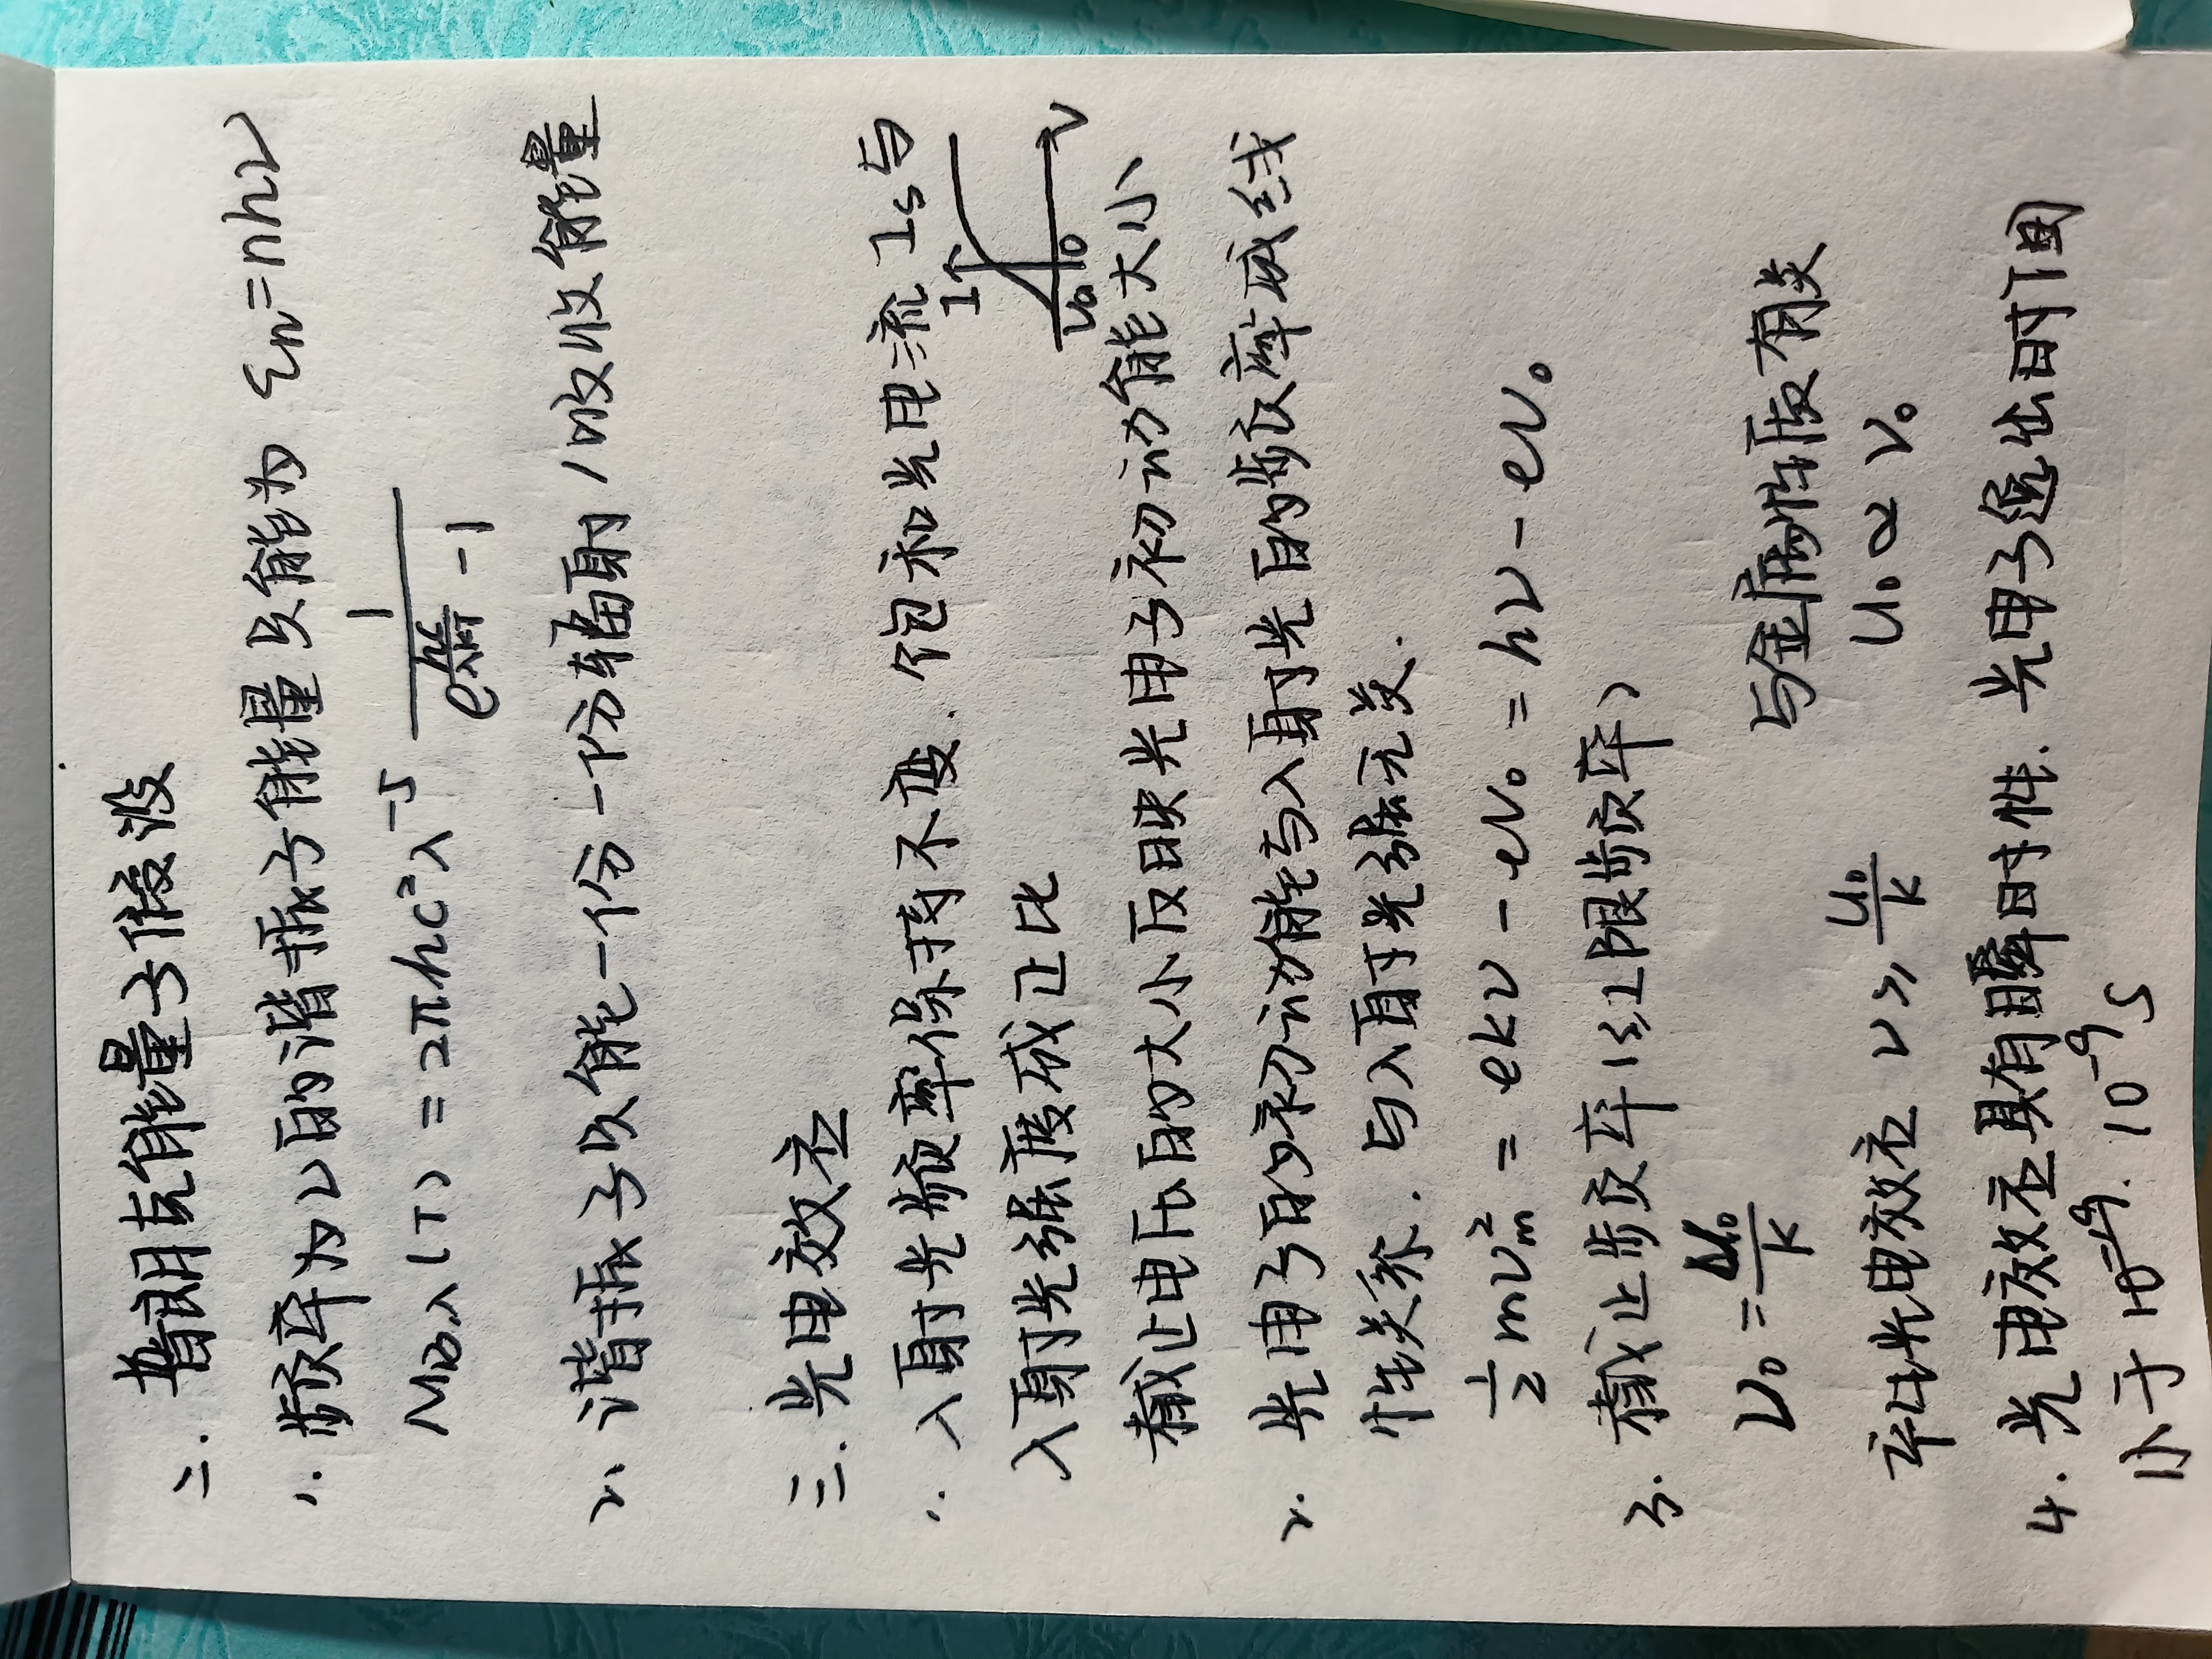 二. 普朗克能量子假设
1. 频率为ν的谐振子能量只能为 εn=nhν
M_B,λ(T) = 2πhc²λ⁻⁵ 1/(e^(hc/λkT) - 1)
2. 谐振子只能一份一份辐射/吸收能量
三. 光电效应
1. 入射光频率保持不变. 饱和光电流 Is与
入射光强度成正比
I
Ua 0 V
截止电压的大小反映光电子初动能大小
2. 光电子的初动能与入射光的频率成线
性关系. 与入射光强无关.
½mv²m = ekν - eU₀ = hν - eU₀
3. 截止频率(红限频率)
ν₀ = U₀/k
与金属性质有关
产生光电效应 ν ≥ U₀/k U₀ ∝ ν₀
4. 光电效应具有瞬时性. 光电子逸出时间
小于 10⁻⁹s